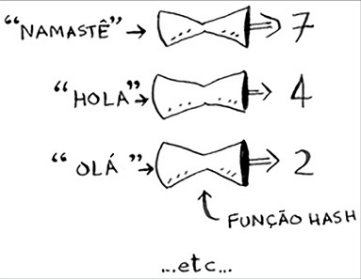 "NAMASTÊ" → 7
"HOLA" → 4
"OLÁ" → 2
FUNÇÃO HASH
...etc...